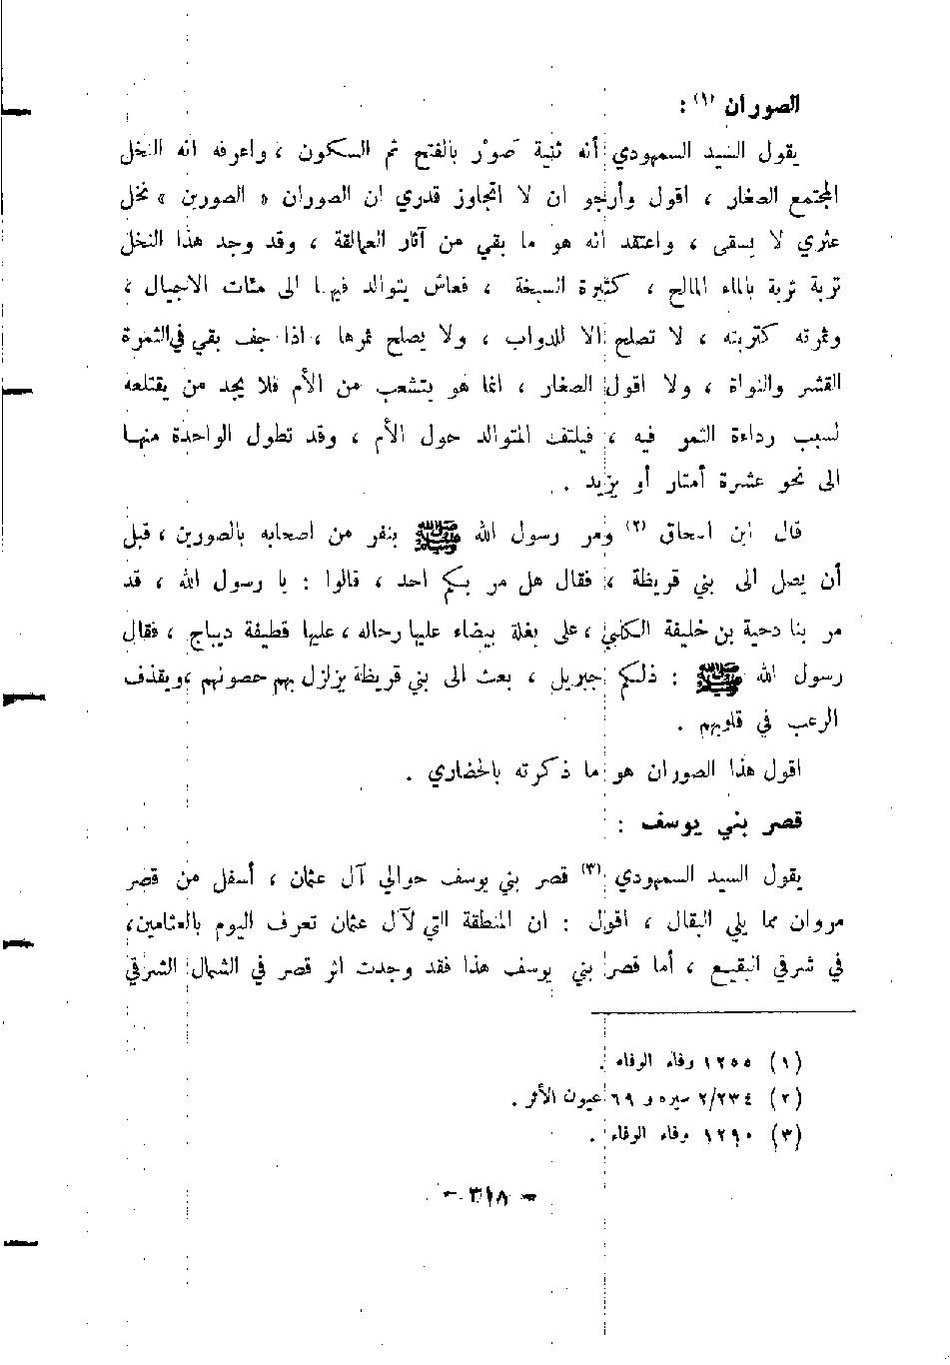 الصوران (١) :
يقول السيد السمهودي أنه ثنية صَوْر بالفتح ثم السكون ، واعرفه انه النخل
المجتمع الصغار ، اقول وأرجو ان لا اتجاوز قدري ان الصوران « الصورين » نخل
عثري لا يسقى ، واعتقد انه هو ما بقي من آثار العمالقة ، وقد وجد هذا النخل
تربة ثرية بالماء المالح ، كثيرة السبخة ، فعاش يتوالد فيها الى مئات الاجيال ،
وثمرته كتربته ، لا تصلح الا للدواب ، ولا يصلح ثمرها ، اذا جف بقي في الثمرة
القشر والنواة ، ولا اقول الصغار ، انما هو يتشعب من الأم فلا يجد من يقتلعه
لسبب رداءة الثمر فيه ، فيلتف المتوالد حول الأم ، وقد تطول الواحدة منها
الى نحو عشرة أمتار أو يزيد .
قال ابن اسحاق (٢) ومر رسول الله ﷺ بنفر من اصحابه بالصورين ، قبل
أن يصل الى بني قريظة ، فقال هل مر بكم احد ، قالوا : يا رسول الله ، قد
مر بنا دحية بن خليفة الكلبي ، على بغلة بيضاء عليها رحاله ، عليها قطيفة ديباج ، فقال
رسول الله ﷺ : ذلكم جبريل ، بعث الى بني قريظة يزلزل بهم حصونهم ، ويقذف
الرعب في قلوبهم .
اقول هذا الصوران هو ما ذكرته بالحضاري .
قصر بني يوسف :
يقول السيد السمهودي (٣) قصر بني يوسف حوالي آل عثمان ، أسفل من قصر
مروان مما يلي البقال ، اقول : ان المنطقة التي لآل عثمان تعرف اليوم بالعثامين،
في شرقي البقيع ، أما قصر بني يوسف هذا فقد وجدت اثر قصر في الشمال الشرقي
(١) ١٢٥٥ وفاء الوفاء .
(٢) ٢/٢٣٤ سيره و ٦٩ عيون الأثر .
(٣) ١٢٩٠ وفاء الوفاء .
- ٣١٨ -